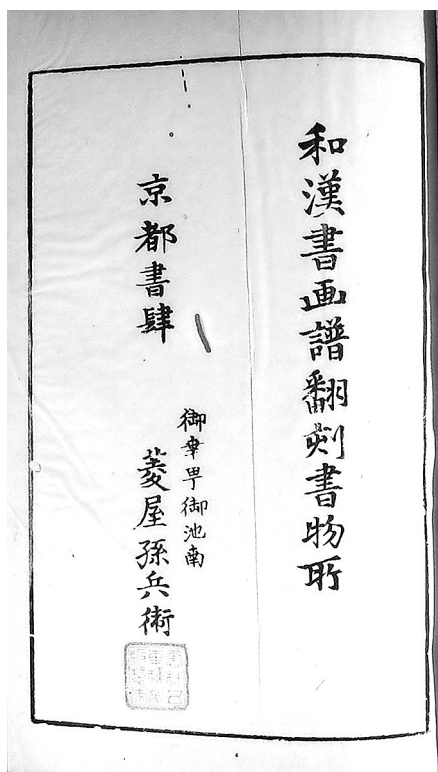 和漢書画譜翻刻書物所
京都書肆
御幸甼御池南
菱屋孫兵衛